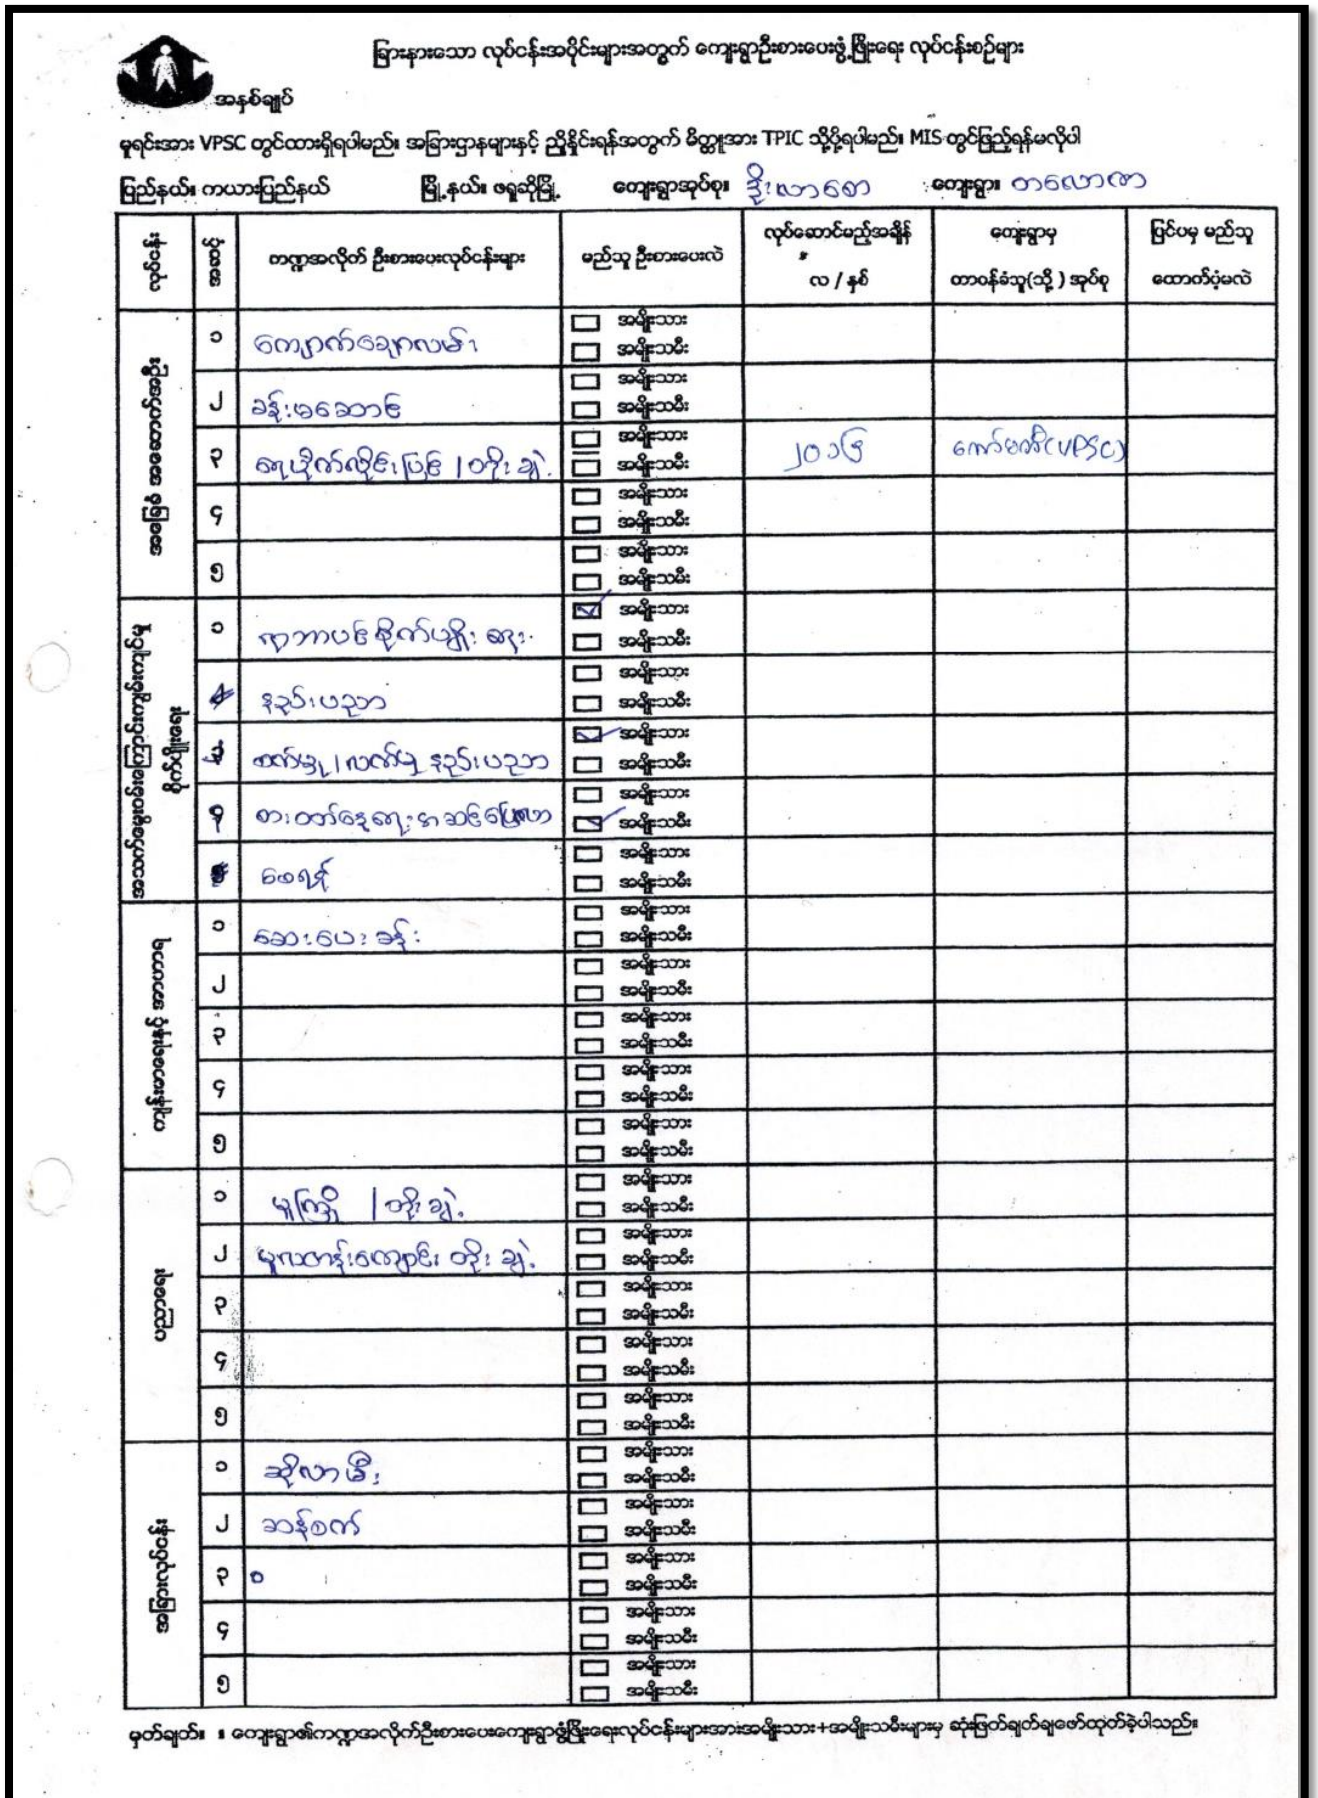 ခြားနားသော လုပ်ငန်းအပိုင်းများအတွက် ကျေးရွာဦးစားပေးဖွံ့ဖြိုးရေး လုပ်ငန်းစဉ်များ
အနှစ်ချုပ်
မူရင်းအား VPSC တွင်ထားရှိရပါမည်။ အခြားဌာနများနှင့် ညှိနှိုင်းရန်အတွက် မိတ္တူအား TPIC သို့ပို့ရပါမည်။ MIS တွင်ဖြည့်ရန်မလိုပါ
ပြည်နယ်။ ကယားပြည်နယ် မြို့နယ်။ ဖရူဆိုမြို့ ကျေးရွာအုပ်စု။ ဒိုးလာစော ကျေးရွာ။ တလောဏ
လုပ်ငန်း အဆင့် ကဏ္ဍအလိုက် ဦးစားပေးလုပ်ငန်းများ မည်သူ ဦးစားပေးလဲ လုပ်ဆောင်မည့်အချိန် လ / နှစ် ကျေးရွာမှ တာဝန်ခံသူ(သို့) အုပ်စု ပြင်ပမှ မည်သူ ထောက်ပံ့မလဲ
အခြေခံအဆောက်အဦး
၁ ကျောက်ချောလမ်း အမျိုးသား
အမျိုးသမီး
၂ ခန်းမဆောင် အမျိုးသား
အမျိုးသမီး
၃ ရေပိုက်လိုင်းပြင် / တိုးချဲ့ အမျိုးသား ၂၀၁၆ ကော်မတီ(VPSC)
အမျိုးသမီး
၄ အမျိုးသား
အမျိုးသမီး
၅ အမျိုးသား
အမျိုးသမီး
အသက်မွေးဝမ်းကျောင်းလုပ်ငန်းမှု စိုက်ပျိုးရေး
၁ ရာဘာပင်စိုက်ပျိုးရေး အမျိုးသား
အမျိုးသမီး
နည်းပညာ အမျိုးသား
အမျိုးသမီး
၃ စက်မှု / လက်မှု နည်းပညာ အမျိုးသား
အမျိုးသမီး
စားဝတ်နေရေးအဆင်ပြေ အမျိုးသား
အမျိုးသမီး
အမျိုးသား
အမျိုးသမီး
ကျန်းမာရေးနှင့် အာဟာရ
၁ ဆေးပေးခန်း အမျိုးသား
အမျိုးသမီး
၂ အမျိုးသား
အမျိုးသမီး
၃ အမျိုးသား
အမျိုးသမီး
၄ အမျိုးသား
အမျိုးသမီး
၅ အမျိုးသား
အမျိုးသမီး
ပညာရေး
၁ မူကြို / တိုးချဲ့ အမျိုးသား
အမျိုးသမီး
၂ မူလတန်းကျောင်း တိုးချဲ့ အမျိုးသား
အမျိုးသမီး
၃ အမျိုးသား
အမျိုးသမီး
၄ အမျိုးသား
အမျိုးသမီး
၅ အမျိုးသား
အမျိုးသမီး
အခြားလုပ်ငန်း
၁ ဆိုလာမီး အမျိုးသား
အမျိုးသမီး
၂ ဆန်စက် အမျိုးသား
အမျိုးသမီး
၃ အမျိုးသား
အမျိုးသမီး
၄ အမျိုးသား
အမျိုးသမီး
၅ အမျိုးသား
အမျိုးသမီး
မှတ်ချက်။ ။ ကျေးရွာ၏ကဏ္ဍအလိုက်ဦးစားပေးကျေးရွာဖွံ့ဖြိုးရေးလုပ်ငန်းများအားအမျိုးသား+အမျိုးသမီးများမှ ဆုံးဖြတ်ချက်ချဖော်ထုတ်ခဲ့ပါသည်။